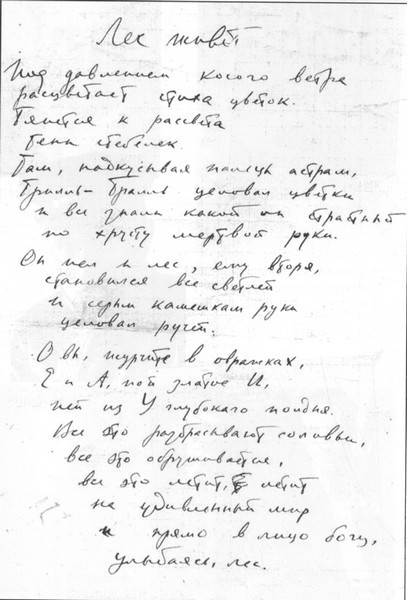 Лес живёт
Под давлением косого ветра
расцветает стиха цветок.
Тянется к рассвета
Тени стебелек.
Там, надкусывая пальцы астрам,
Тралль-Тралль целовал цветки
и все знали какой он страстный
по хрусту мертвой руки.
Он пел и лес, ему вторя,
становился все светлей
и серым камешкам руки
целовал ручей.
О вы, журчите в овражках,
Е и А, пой златое И,
пей из У глубокого полдня.
Все это разбрасывают соловьи,
все это обрушивается,
все это летит, летит
на удивленный мир
и прямо в лицо богу,
улыбаясь, лес.